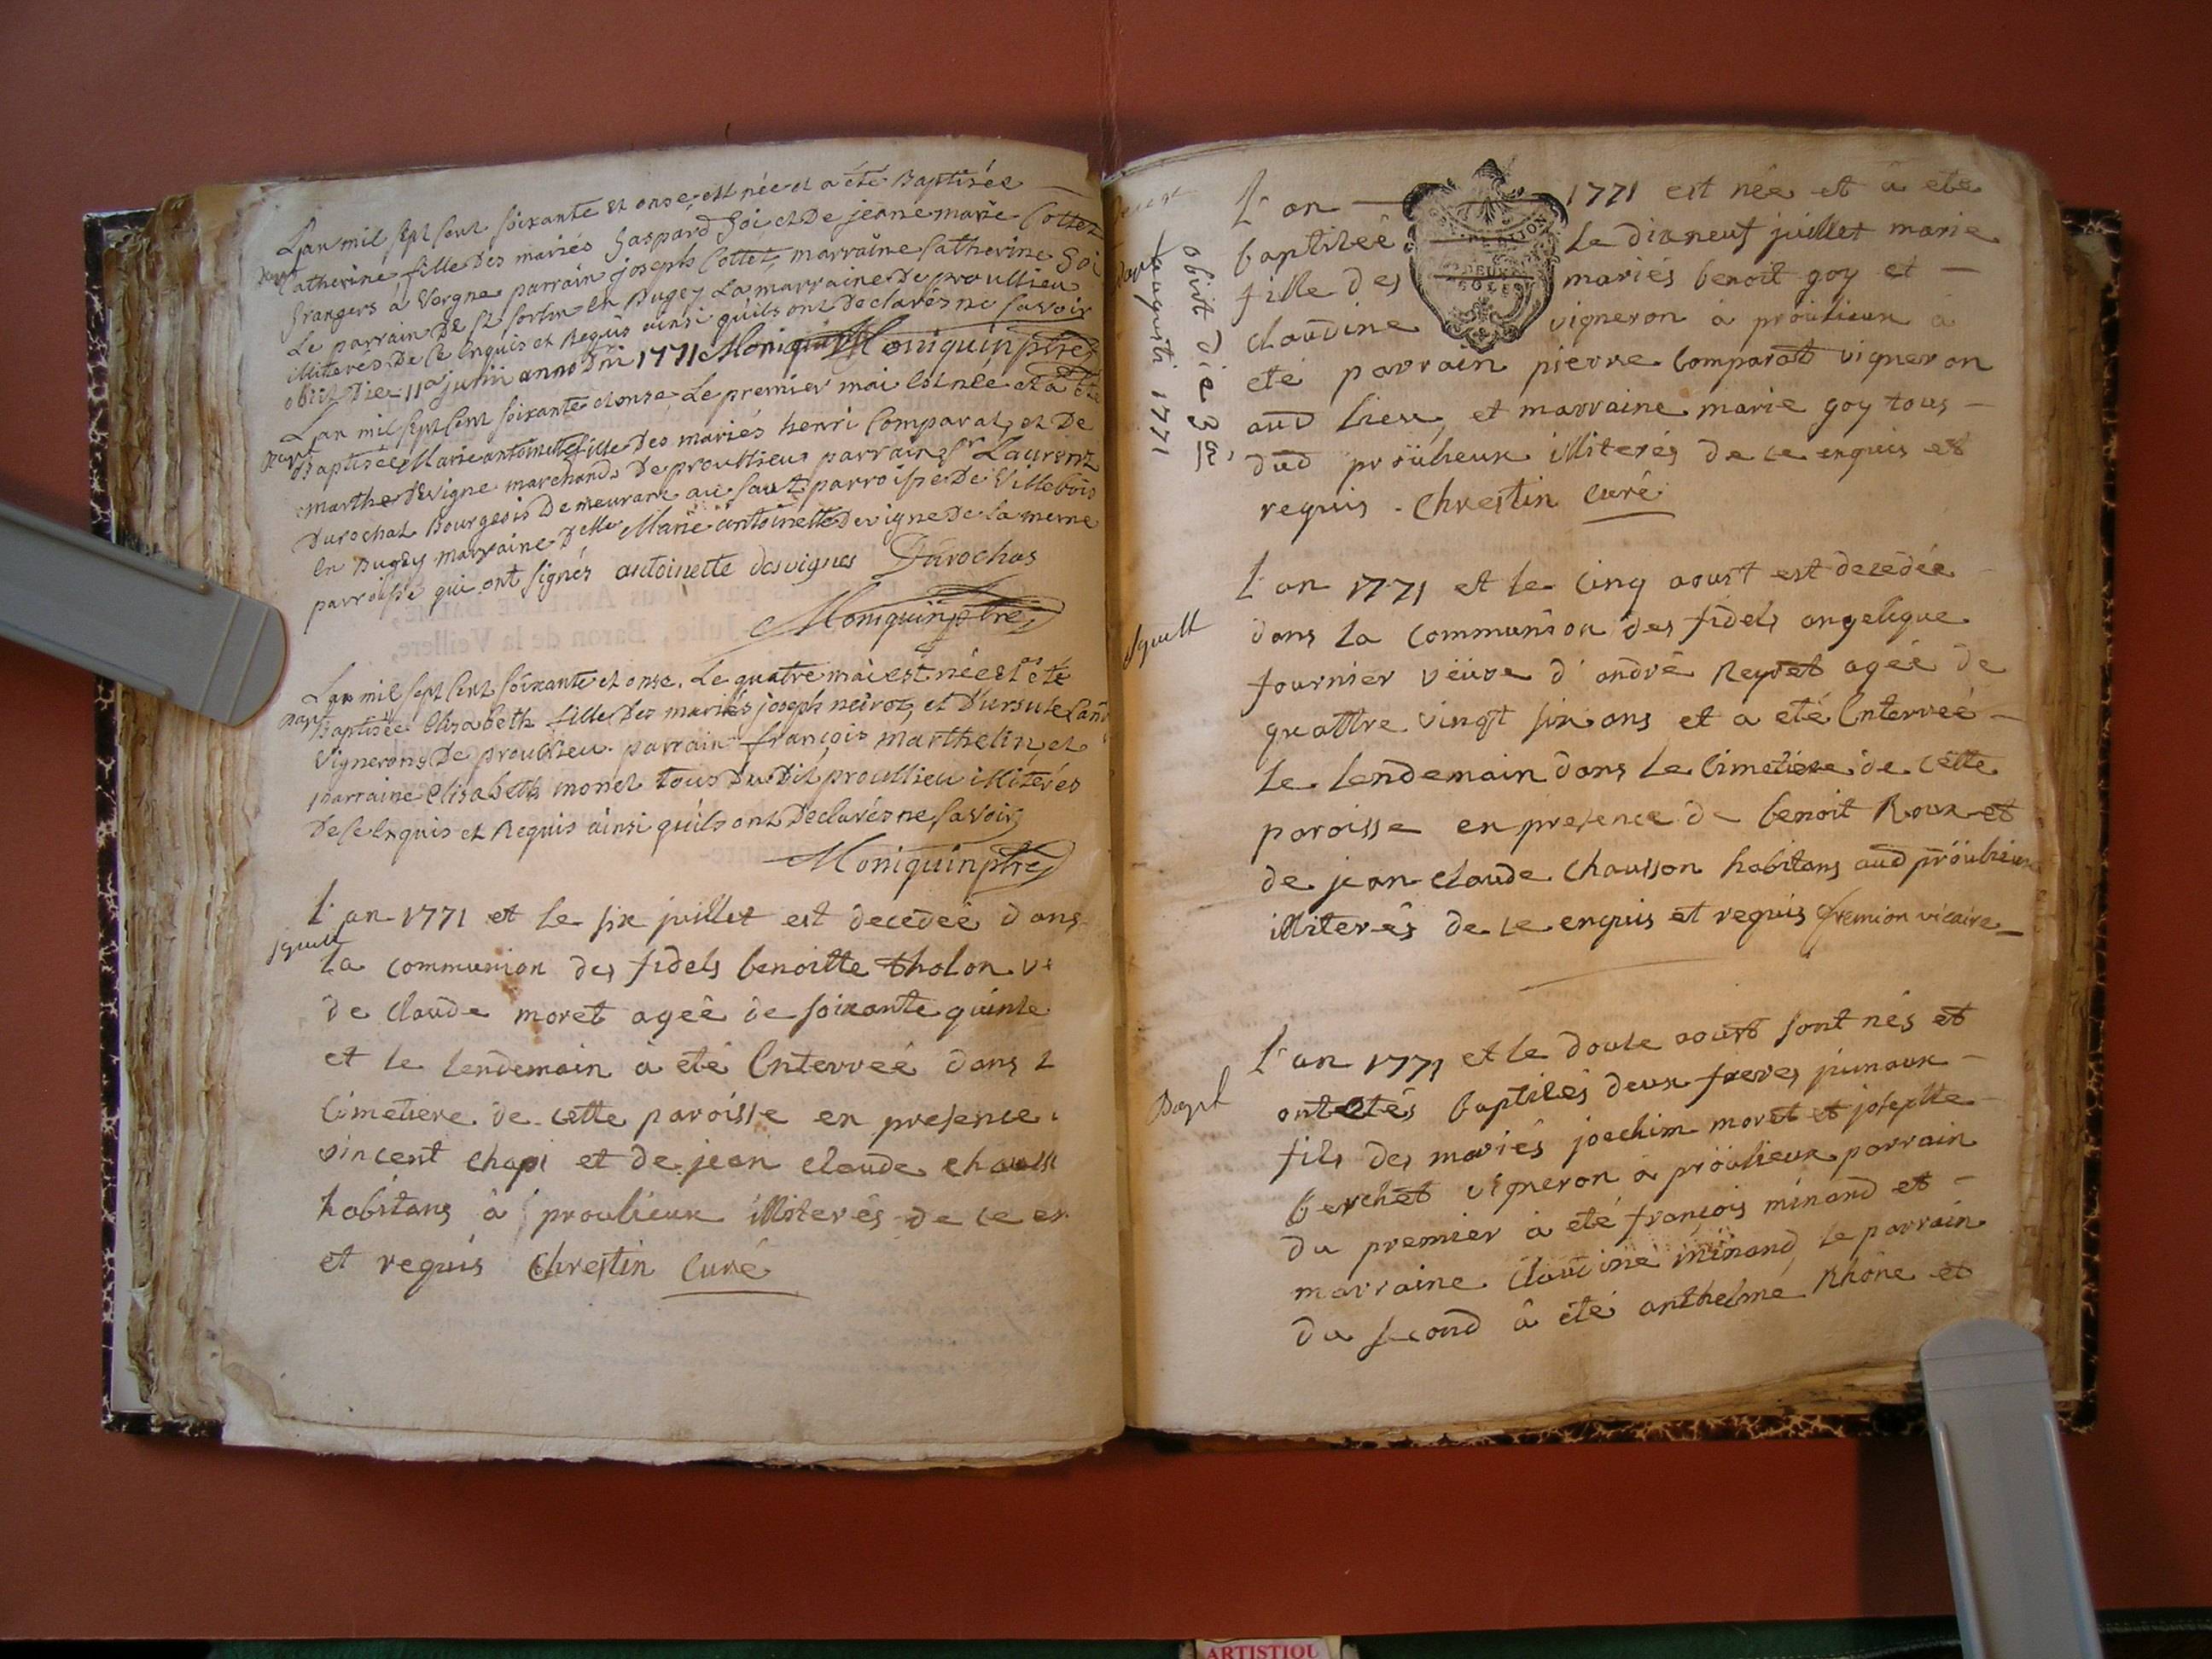 L'an mil sept cent soixante et onse, est née et a été Baptisée
Bapt
Catherine, fille des mariés Gaspard Goi et De jeanne marie Cottet
Grangers à Vergne parrain joseph Cottet, marraine Catherine Goi
Le parrain De st Sorlin en Bugey La marraine De proullieu
illiterés De ce Enquis et Requis ainsi qu'ils ont Declarés ne savoir
obiit Die 11a junii anno Dni 1771 Moniquin ptre
L'an mil sept cent soixante et onse Le premier mai Est née et a été
Bapt
Baptisée Marie antoinette fille Des mariés henri Comparat, et De
marthe Devigne marchands De proullieu parrain Sr Laurent
Durochat Bourgeois Demeurant au Saut parroisse De Villebois
en Bugey marraine Delle Marie antoinette Devigne De la meme
parroisse qui ont signés antoinette desvignes Durochas
Moniquin ptre
L'an mil sept cent soixante et onse. Le quatre mai est née et a été
Bapt
Baptisée Elisabeth fille Des mariés joseph neiroz, et D'ursule
Vignerons De proullieu parrain françois marthelin, et
marraine Elisabeth monet tous Du Dit proullieu illiterés
De ce Enquis et Requis ainsi qu'ils ont Declarés ne savoir
Moniquin ptre
L'an 1771 et le six juillet est decedeé dans
Sepult
la communion des fidels benoitte tholon
de claude moret ageê de soixante quinze
et le lendemain a eté Enterreé dans
Cimetiere de cette paroisse en presence
vincent chapi et de jean claude
habitans à proulieux illiterés de ce
et requis Chrestin Curé
L'an 1771 est neé et a eté
baptiseê le dixneuf juillet marie
fille des mariés benoit goy et
claudine vigneron a proulieux a
eté parrain pierre Comparat vigneron
aud lieu, et marraine marie goy tous
dud proulieux illiterés de ce enquis et
requis. Chrestin Curé
obiit die 3a
augusti 1771
L'an 1771 et le Cinq aoust est decedée
Sepult
dans la communion des fidels angelique
fournier veuve d'andré Reyret ageé de
quattre vingt six ans et a eté Enterreé
le lendemain dans le Cimetiere de cette
paroisse en presence de benoit Roux et
de jean claude Chausson habitans aud proulieux
illiterés de ce enquis et requis fremion vicaire
L'an 1771 et le douze aoust sont nés et
Bapt
ont etés baptisés deux freres jumaux
fils des mariés joachim moret et josephte
berchet vigneron a proulieux parrain
du premier a eté françois minand et
marraine Claudine minand, le parrain
du second a été anthelme Rhône et
ARTISTIQU